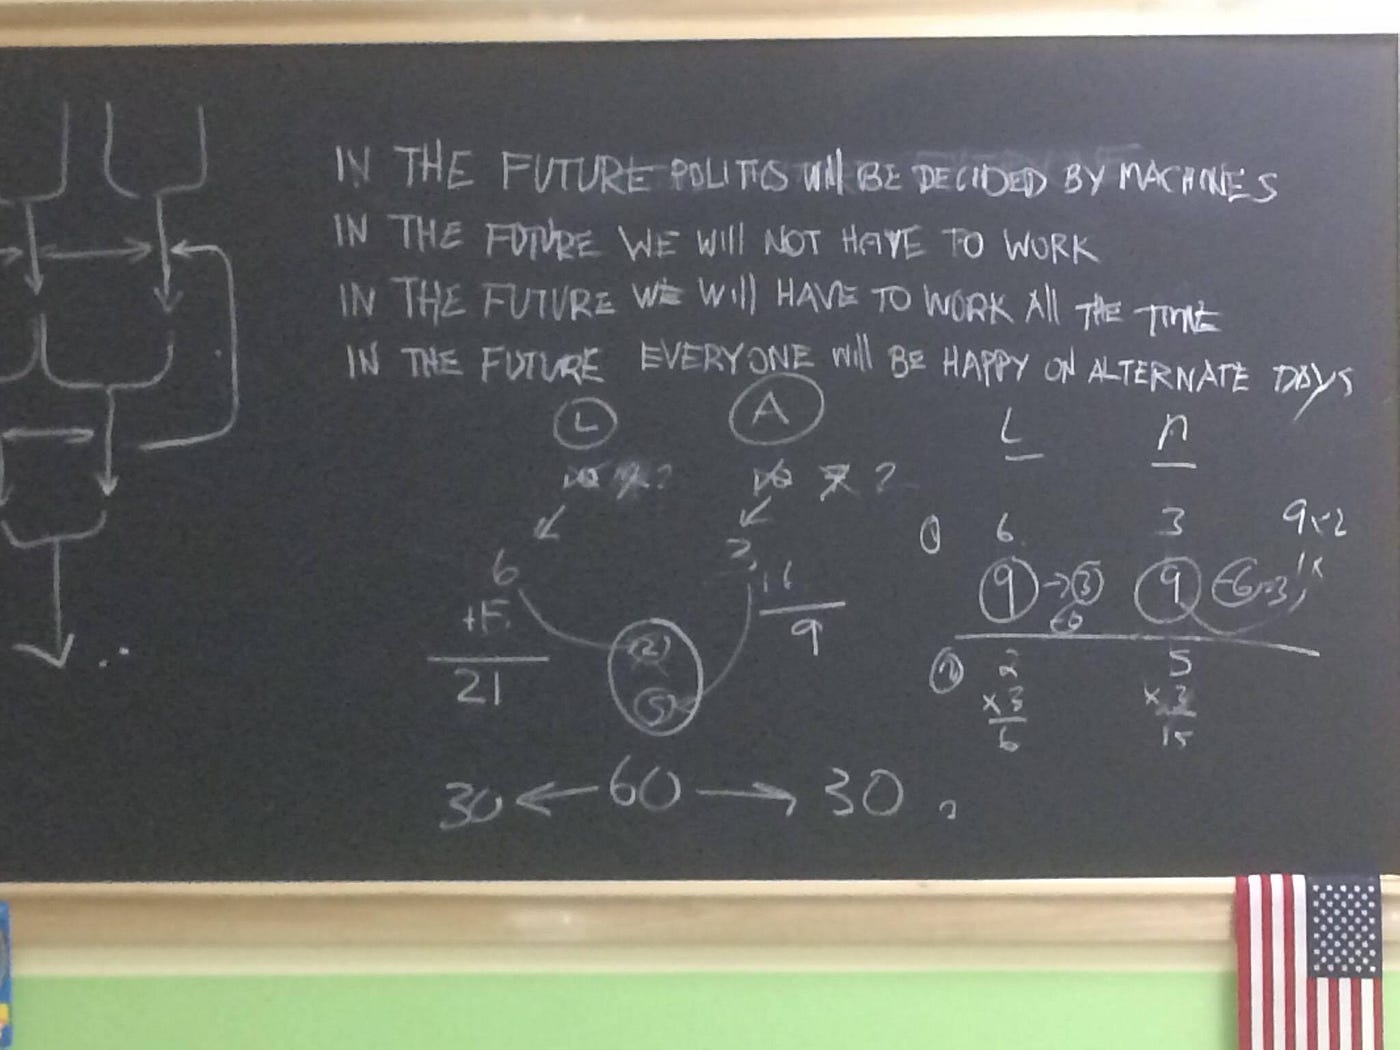 IN THE FUTURE POLITICS WIll BE DECIDED BY MACHINES
IN THE FUTURE WE WIll NOT HAVE TO WORK
IN THE FUTURE WE WIll HAVE TO WORK All THE TIME
IN THE FUTURE EVERYONE WIll BE HAPPY ON ALTERNATE DAYS
L A
L
?
?
1 6 3 9x2
6
9 → 3 9
-6
9
21
2 2 5
x3
6 15
5
30 ← 60 → 30